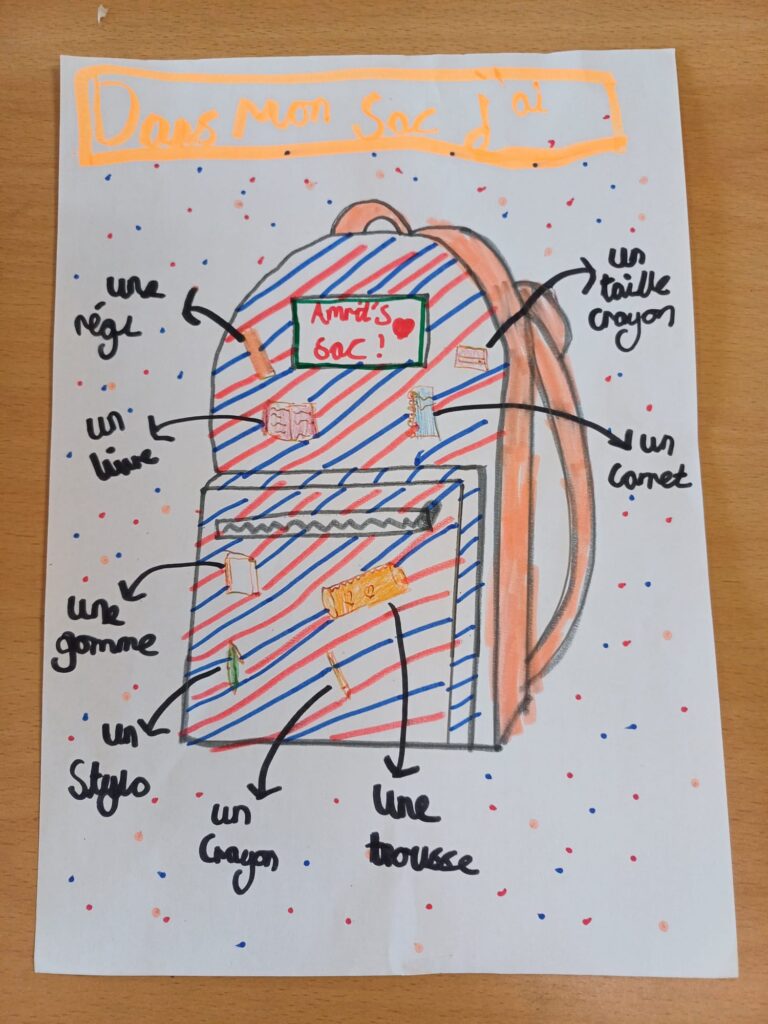 Dans Mon Sac j'ai
Amrit's
Sac!
une
régl
un
taille
crayon
un
livre
un
carnet
une
gomme
un
Stylo
un
Crayon
une
trousse